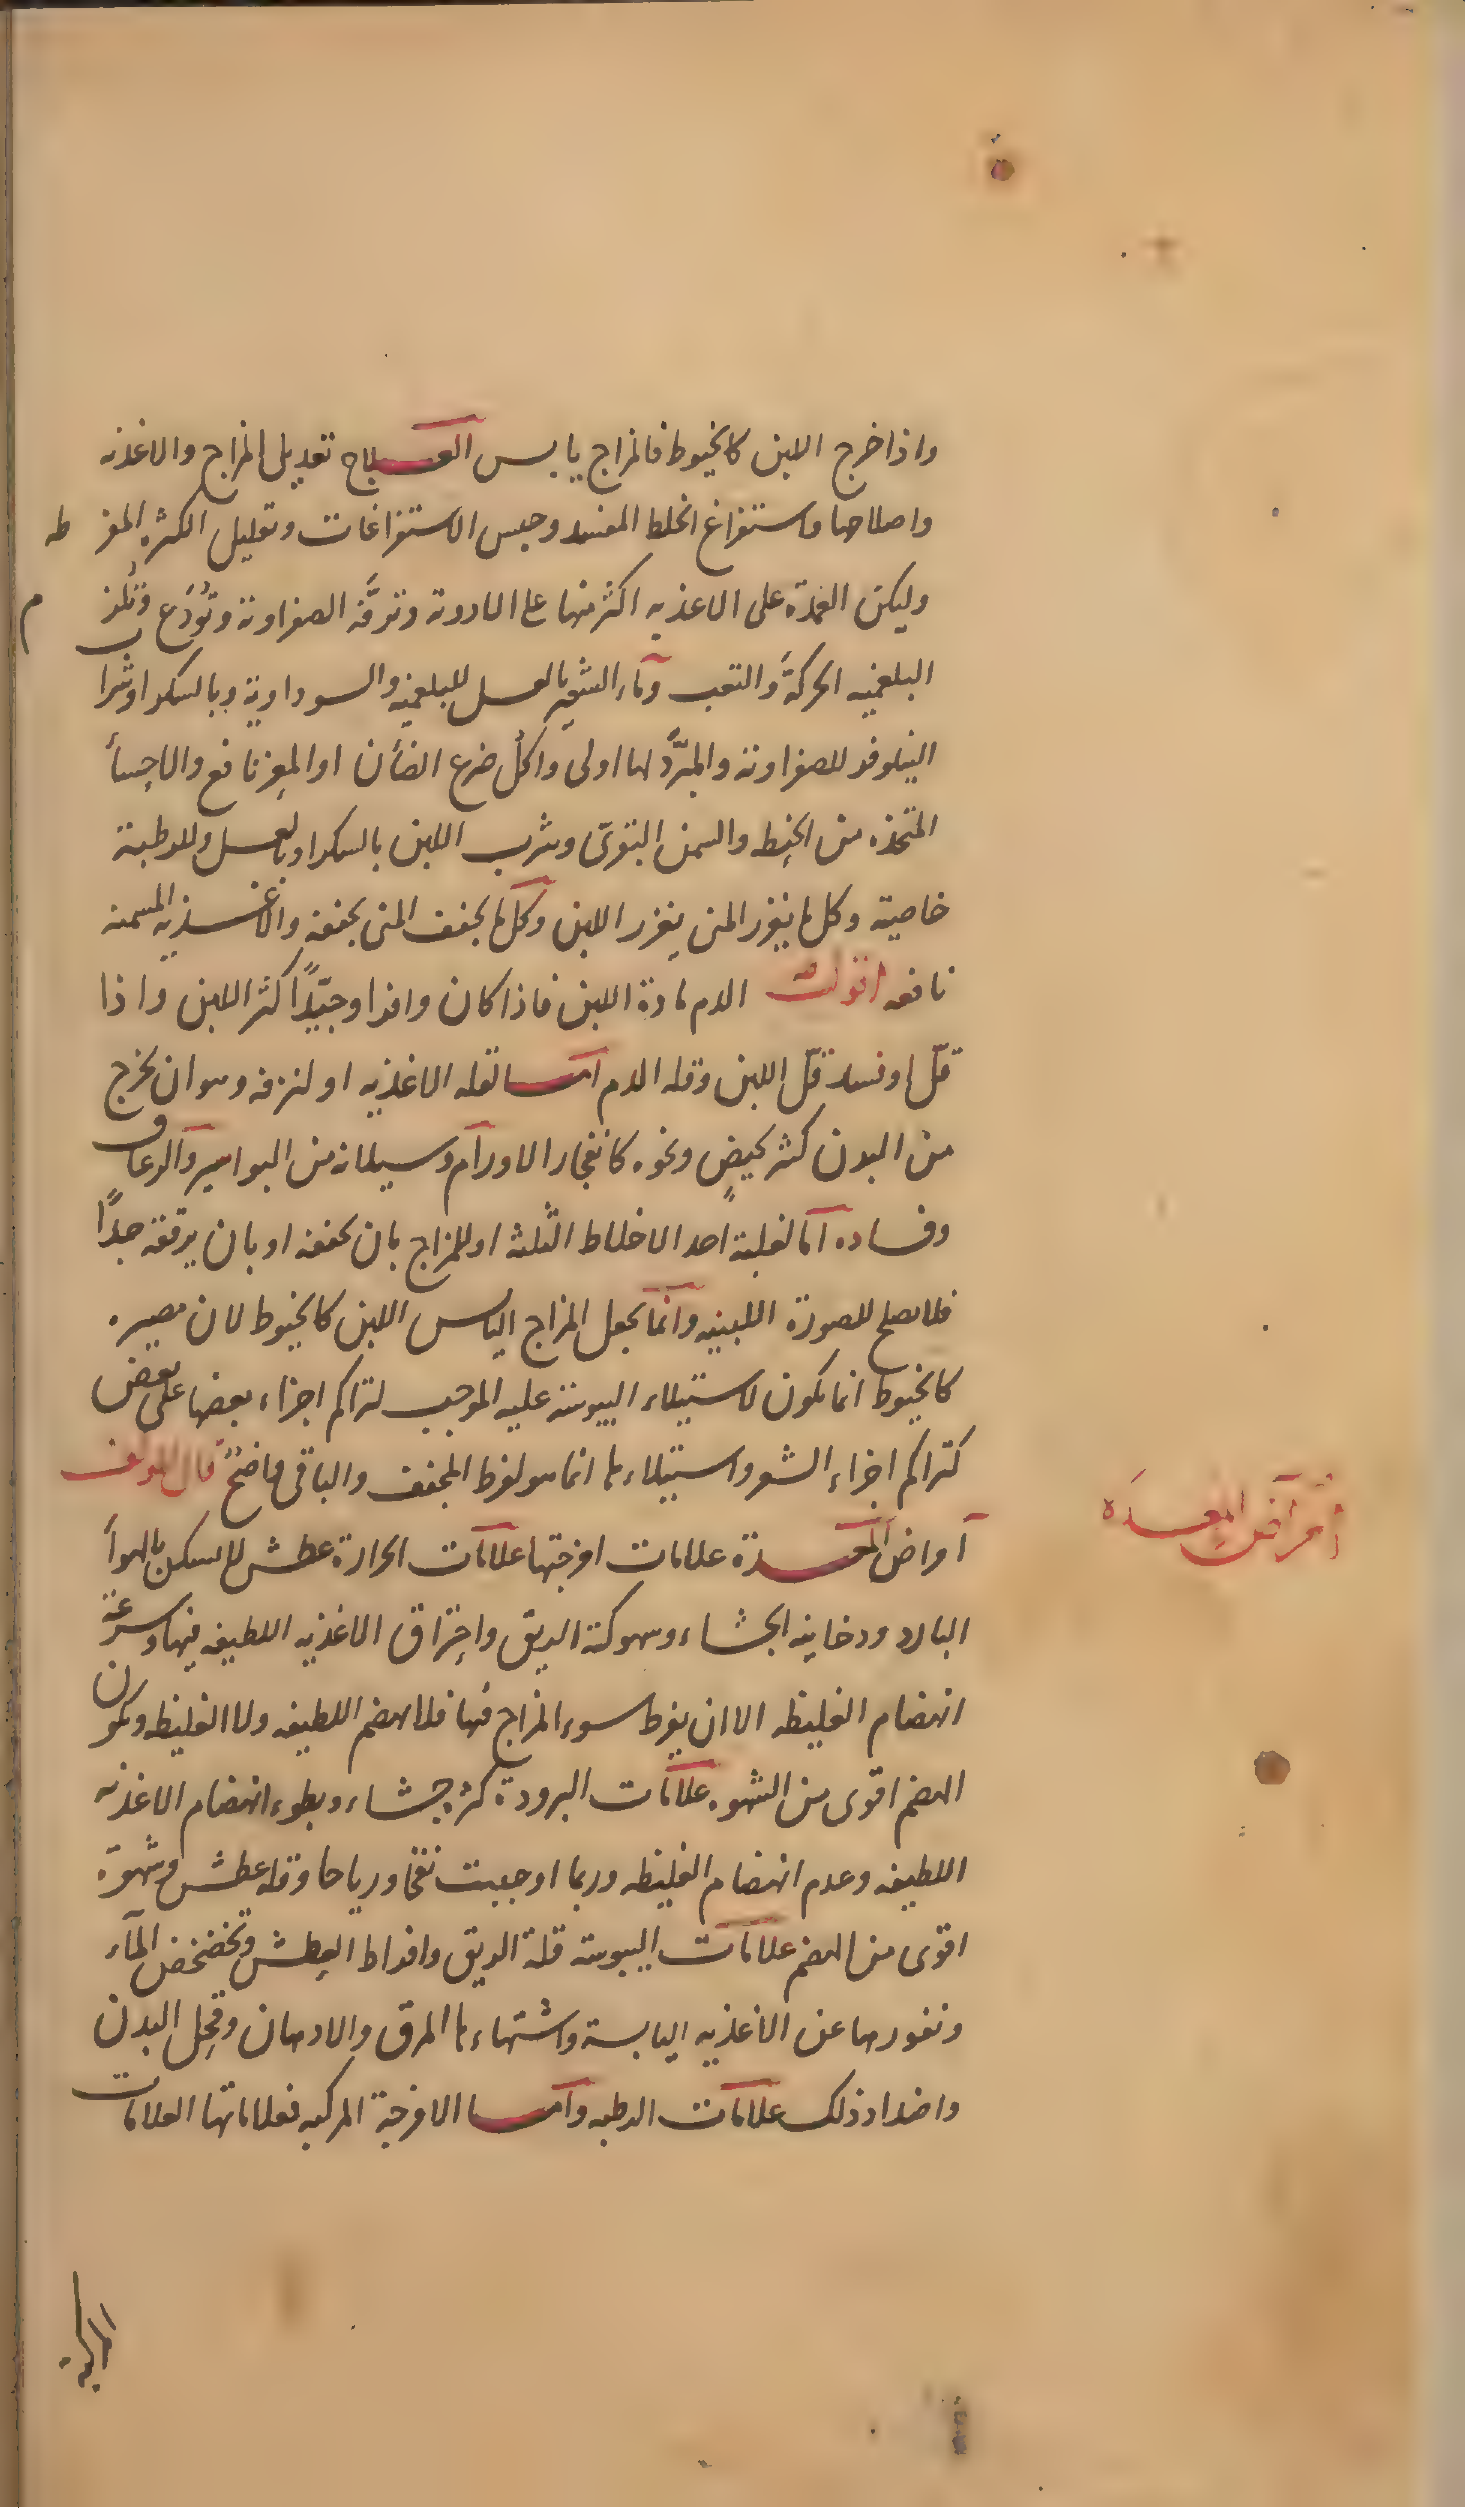 واذا خرج اللبن كالخيوط فالمزاج يابس العلاج تعديل المزاج والاغذيه
واصلاحها واستفراغ الخلط المفسد وحبس الاستفراغات وتقليل الكثره المفرطه
وليكن العمدة على الاغذيه اكثر منها على الادوية وترفَّه الصفراوية وتُودَع وتُلزم
البلغميه الحركةَ والتعب وماء الشعير بالعسل للبلغميه والسوداوية وبالسكر او شراب
النيلوفر للصفراوية والمبرَّد لها اولى واكل ضرع الضأن او المعز نافع والاحسأ
المتخذه من الحنطه والسمن البقرى وشرب اللبن بالسكر او بالعسل وللرطبة
خاصية وكل ما يغزر المنى يغزر اللبن وكل ما يجفف المنى يجففه والاغذيه المسمنه
نافعه اقول الدم مادة اللبن فاذا كان وافرا وجيّدًا كثر اللبن واذا
قلّ او فسد قلّ اللبن وقله الدم اما لقله الاغذيه او لنزفه وهو ان يخرج
من البدن كثر بحيضٍ ونحوه كانفجار الاورام وسيلانه من البواسير والرعاف
وفساده اما لغلبة احد الاخلاط الثلثه او للمزاج بان يجففه او بان يرققه جدًا
فلا يصلح للصورة اللبنيه وانما يجعل المزاج اليابس اللبن كالخيوط لان مصيره
كالخيوط انما يكون لاستيلاء اليبوسة عليه الموجب لتراكم اجزاء بعضها على بعض
كتراكم اجزاء الشعر واستيلاءها انما هو لفرط المجفف والباقى واضحٌ قال المولف
امراض المعدة علامات امزجتها علامات الحرارة عطش يسكن بالهوأ
البارد ودخانيه الجشاء وسهوكة الريق واحتراق الاغذيه اللطيفه فيها وسرعة
انهضام الغليظه الا ان يفرط سوء المزاج فيها فلا يهضم اللطيفه ولا الغليظه ويكون
الهضم اقوى من الشهوه علامات البرودة كثره جشاء وبطوء انهضام الاغذيه
اللطيفه وعدم انهضام الغليظه وربما اوجبت نفخا ورياحا وقله عطش وشهوة
اقوى من الهضم علامات اليبوسة قلة الريق وافراط العطش وتخضخض الماء
ونفورها عن الاغذيه اليابسة واشتهاءها المرق والادهان وقحل البدن
واضداد ذلك علامات الرطبه واما الامزجة المركبه فعلاماتها العلامات
المركبة
امراض المعدَة